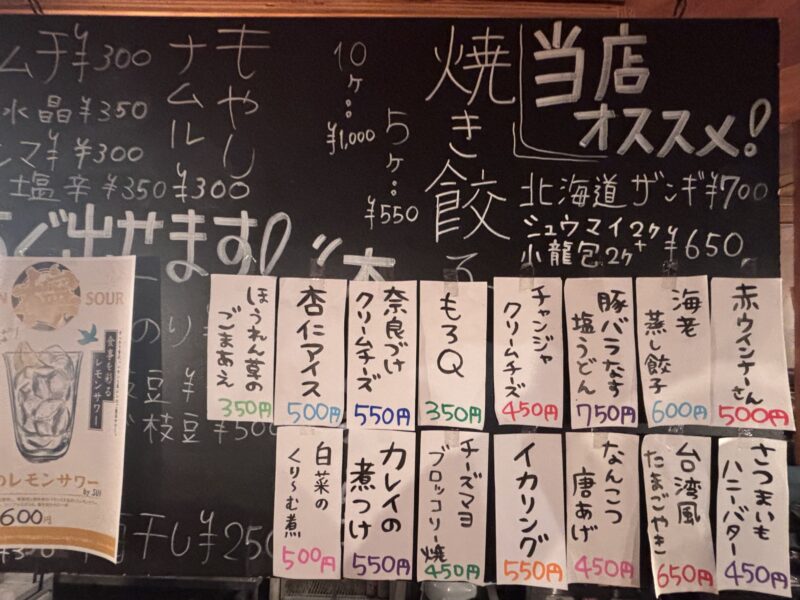 当店
オススメ!
北海道ザンギ¥700
シュウマイ2ケ+
小龍包2ケ
¥650
焼き餃子
5ケ…
¥550
10ケ…
¥1,000
もやし
ナムル
¥300
ムチ¥300
水晶¥350
¥300
塩辛¥350
ぐ出せます!
赤ウインナーさん
500円
海老
蒸し餃子
600円
豚バラなす
塩うどん
750円
チャンジャ
クリームチーズ
450円
もろQ
350円
奈良づけ
クリームチーズ
550円
杏仁アイス
500円
ほうれん草の
ごまあえ
350円
さつまいも
ハニーバター
450円
台湾風
たまごやき
650円
なんこつ
唐あげ
450円
イカリング
550円
チーズマヨ
ブロッコリー焼
450円
カレイの
煮つけ
550円
白菜の
くり~む煮
500円
のり¥
枝豆¥
枝豆¥500
干し¥250
SOUR
食事を彩る
レモンサワー
のレモンサワー
600円